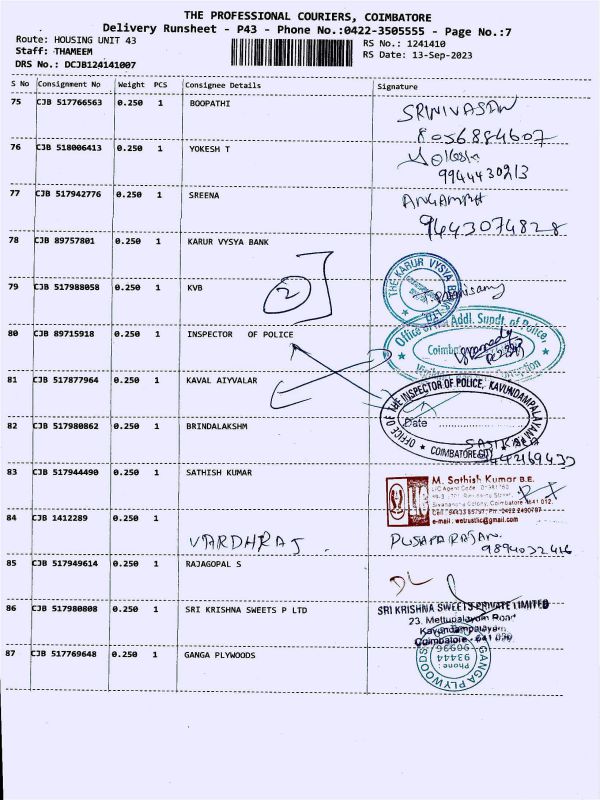 THE PROFESSIONAL COURIERS, COIMBATORE
Delivery Runsheet - P43 - Phone No.:0422-3505555 - Page No.:7
Route: HOUSING UNIT 43
RS No.: 1241410
Staff: THAMEEM
RS Date: 13-Sep-2023
DRS No.: DCJB124141007
S No Consignment No Weight PCS Consignee Details Signature
75 CJB 517766563 0.250 1 BOOPATHI SRINIVASAN
8056884607
76 CJB 518006413 0.250 1 YOKESH T
9944430213
77 CJB 517942776 0.250 1 SREENA
9443074828
78 CJB 89757801 0.250 1 KARUR VYSYA BANK
THE KARUR VYSYA
79 CJB 517988058 0.250 1 KVB
2
80 CJB 89715918 0.250 1 INSPECTOR OF POLICE
Office of the Addl. Supdt. of Police,
81 CJB 517877964 0.250 1 KAVAL AIYVALAR
OFFICE OF THE INSPECTOR OF POLICE, KAVUNDAMPALAYAM
Date
COIMBATORE CITY
82 CJB 517980862 0.250 1 BRINDALAKSHM
83 CJB 517944490 0.250 1 SATHISH KUMAR
M. Sathish Kumar B.E.
Sivananda Colony, Coimbatore - 641 012.
e-mail : wetrustlic@gmail.com
84 CJB 1412289 0.250 1
VARDHRAJ. PUSHPARAJAN.
9894032416
85 CJB 517949614 0.250 1 RAJAGOPAL S
86 CJB 517980808 0.250 1 SRI KRISHNA SWEETS P LTD
SRI KRISHNA SWEETS PRIVATE LIMITED
23, Mettupalayam Road
Kavundampalayam,
Coimbatore - 641 030
87 CJB 517769648 0.250 1 GANGA PLYWOODS
GANGA PLYWOODS
Phone :
93444
96996